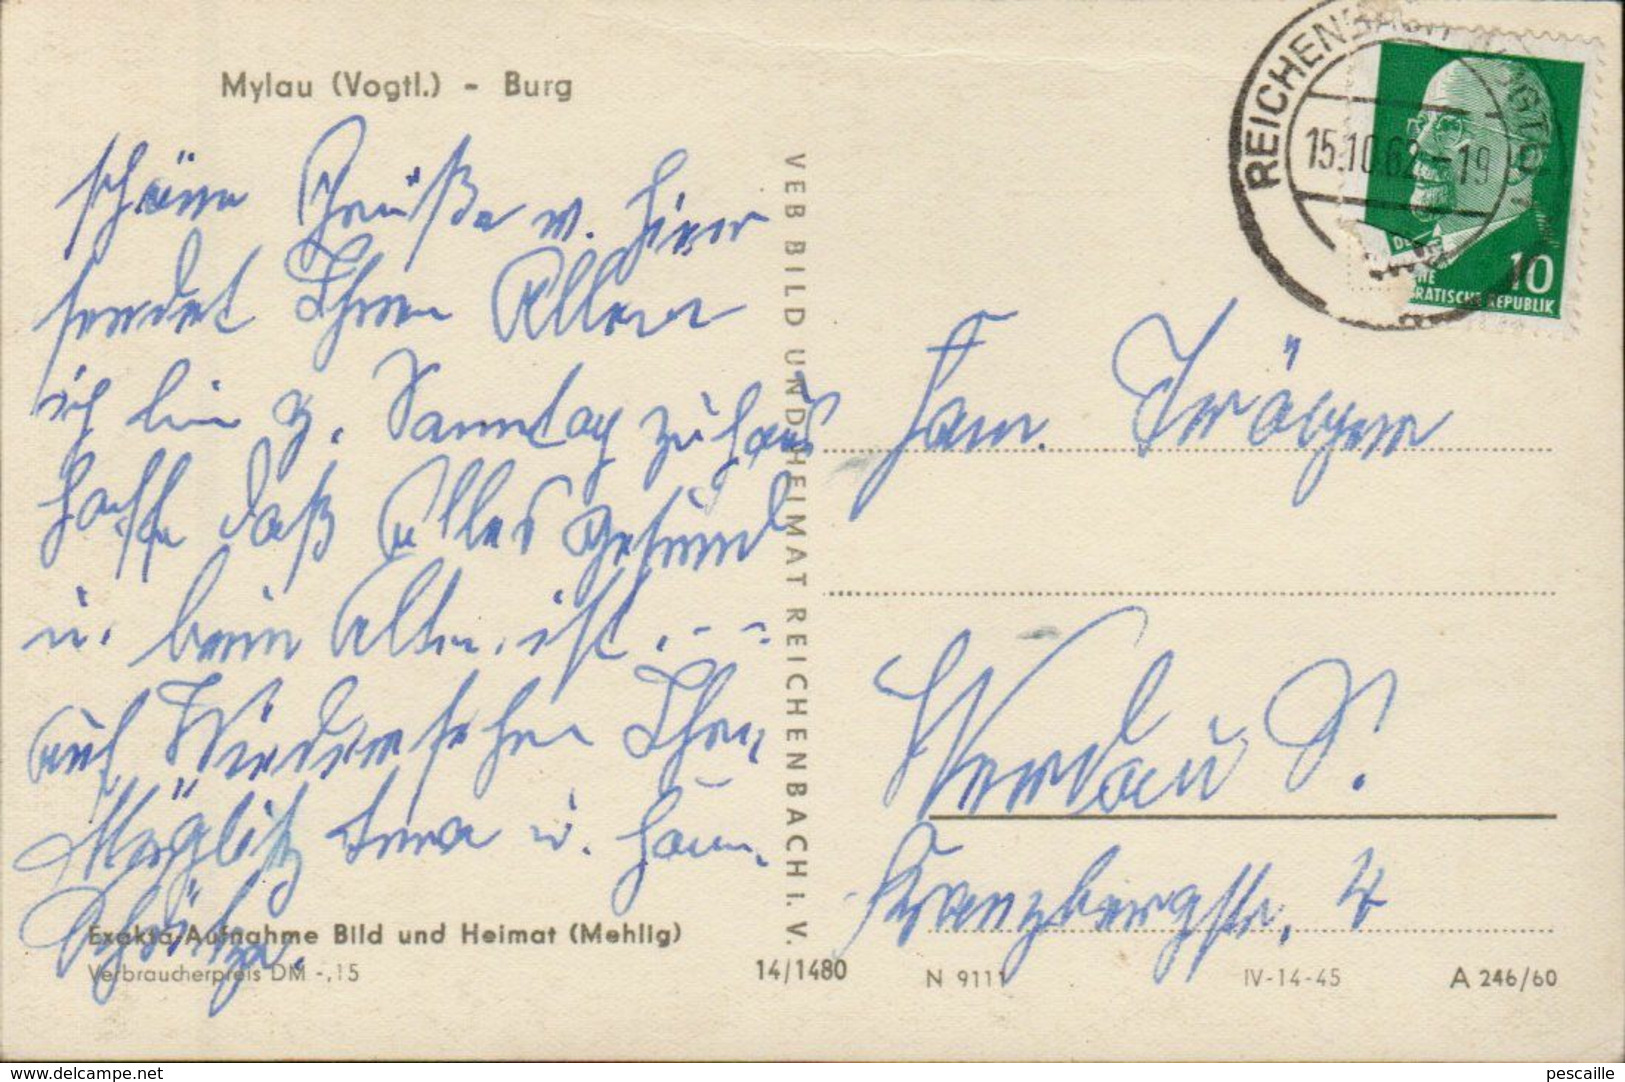 Mylau (Vogtl.) - Burg
schöne Grüße v. hier
sendet Ihnen Allen
ich bin z. Sonntag zu haus
hoffe daß Alles gesund
u. beim Alten ist. - -
auf Wiedersehen Ihre
u. Fam.
Exakta/Aufnahme Bild und Heimat (Mehlig)
Verbraucherpreis DM -,15
VEB BILD UND HEIMAT REICHENBACH I. V.
14/1480
REICHENBACH (VOGTL)
15.10.62.-19
10
DEUTSCHE DEMOKRATISCHE REPUBLIK
Fam. Träger
Werdau S.
Kranzbergstr. 4
N 9111
IV-14-45
A 246/60
www.delcampe.net
pescaille